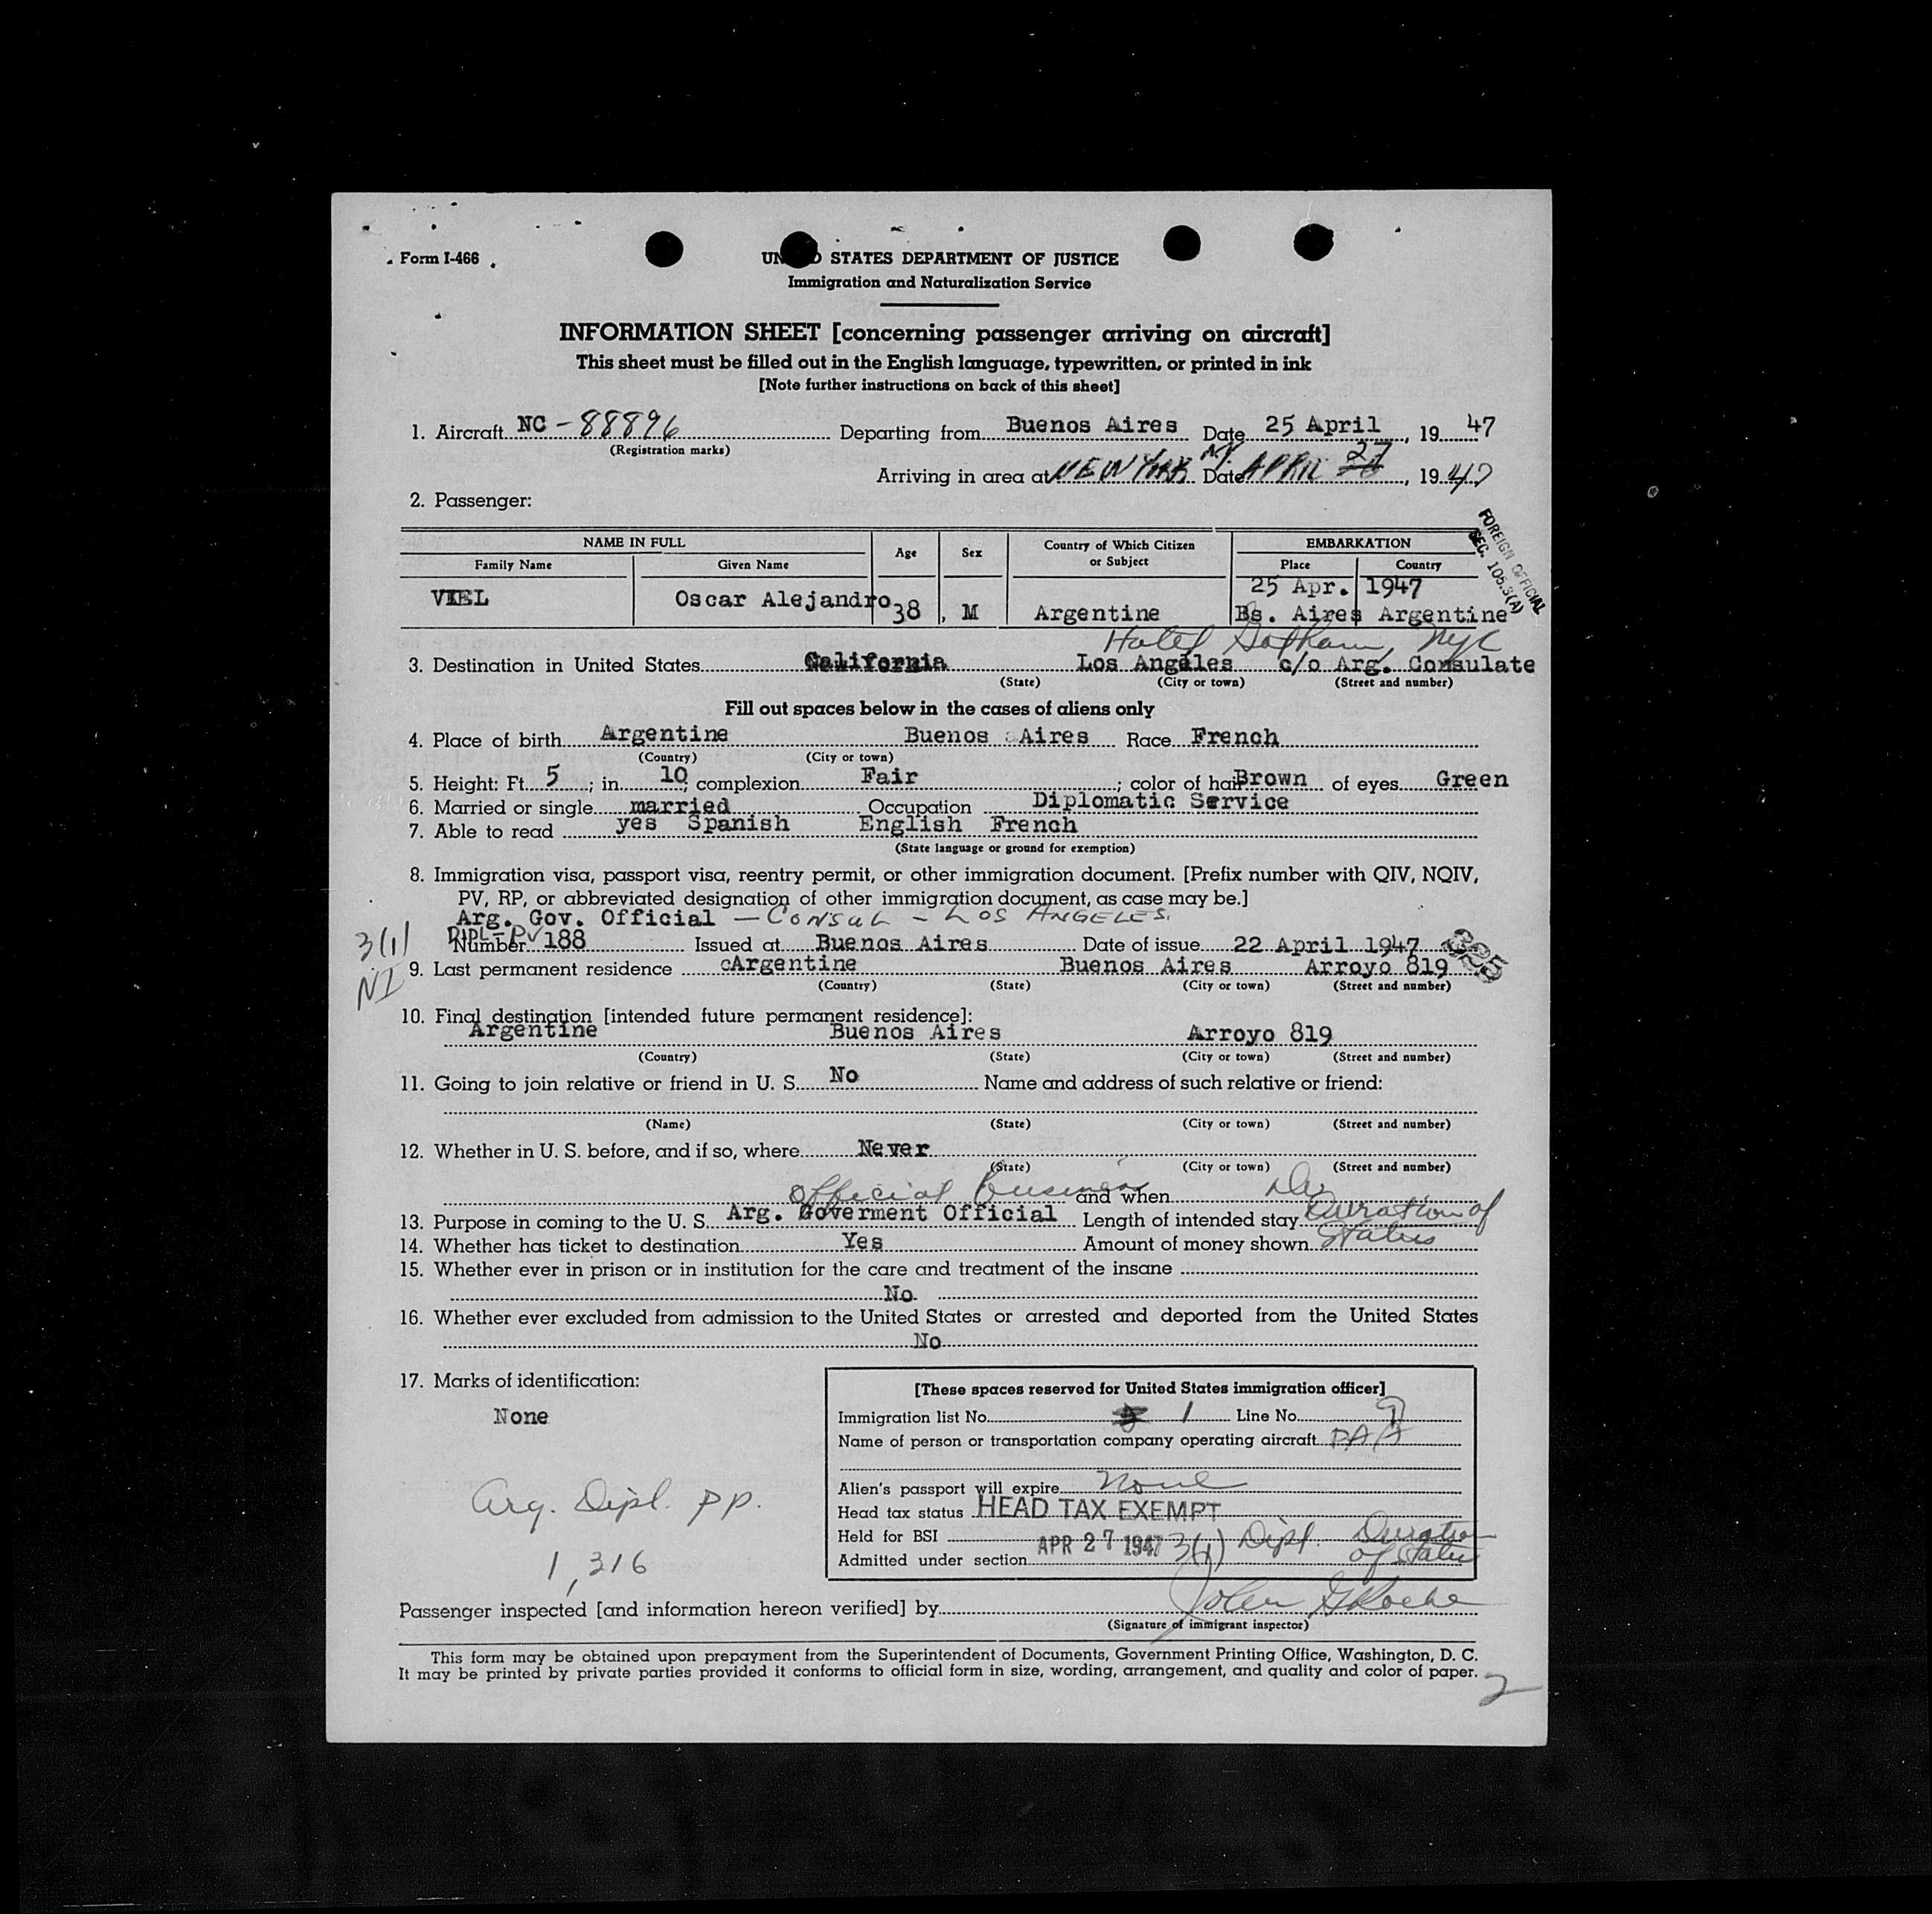 Form I-466
UNITED STATES DEPARTMENT OF JUSTICE
Immigration and Naturalization Service
INFORMATION SHEET [concerning passenger arriving on aircraft]
This sheet must be filled out in the English language, typewritten, or printed in ink
[Note further instructions on back of this sheet]
1. Aircraft NC-88896 Departing from Buenos Aires Date 25 April, 1947
(Registration marks)
Arriving in area at NEW YORK N.Y. Date APRIL 27, 1947
2. Passenger:
NAME IN FULL Age Sex Country of Which Citizen or Subject EMBARKATION
Family Name Given Name Place Country
FOREIGN OFFICIAL
SEC. 108.3(A)
25 Apr. 1947
VIEL Oscar Alejandro 38, M Argentine Bs. Aires Argentine
Hotel Gotham, NYC
3. Destination in United States California Los Angeles c/o Arg. Consulate
(State) (City or town) (Street and number)
Fill out spaces below in the cases of aliens only
4. Place of birth Argentine Buenos Aires Race French
(Country) (City or town)
5. Height: Ft. 5; in. 10; complexion Fair; color of hair Brown of eyes Green
6. Married or single married Occupation Diplomatic Service
7. Able to read yes Spanish English French
(State language or ground for exemption)
8. Immigration visa, passport visa, reentry permit, or other immigration document. [Prefix number with QIV, NQIV,
PV, RP, or abbreviated designation of other immigration document, as case may be.]
Arg. Gov. Official — CONSUL - LOS ANGELES.
3(1) DIPL-PV Number 188 Issued at Buenos Aires Date of issue 22 April 1947
NI 9. Last permanent residence Argentine Buenos Aires Arroyo 819
(Country) (State) (City or town) (Street and number)
10. Final destination [intended future permanent residence]:
Argentine Buenos Aires Arroyo 819
(Country) (State) (City or town) (Street and number)
11. Going to join relative or friend in U. S. No Name and address of such relative or friend:
(Name) (State) (City or town) (Street and number)
12. Whether in U. S. before, and if so, where Never
(State) (City or town) (Street and number)
official business and when
13. Purpose in coming to the U. S. Arg. Goverment Official Length of intended stay Duration of
14. Whether has ticket to destination Yes Amount of money shown Status
15. Whether ever in prison or in institution for the care and treatment of the insane
No
16. Whether ever excluded from admission to the United States or arrested and deported from the United States
No
17. Marks of identification:
None
Arg. Dipl. pp.
1,316
[These spaces reserved for United States immigration officer]
Immigration list No. 1 Line No. 9
Name of person or transportation company operating aircraft PAA
Alien's passport will expire None
Head tax status HEAD TAX EXEMPT
Held for BSI
Admitted under section APR 27 1947 3(1) Dipl. Duration of Status
Passenger inspected [and information hereon verified] by John Roche
(Signature of immigrant inspector)
This form may be obtained upon prepayment from the Superintendent of Documents, Government Printing Office, Washington, D. C.
It may be printed by private parties provided it conforms to official form in size, wording, arrangement, and quality and color of paper.
2